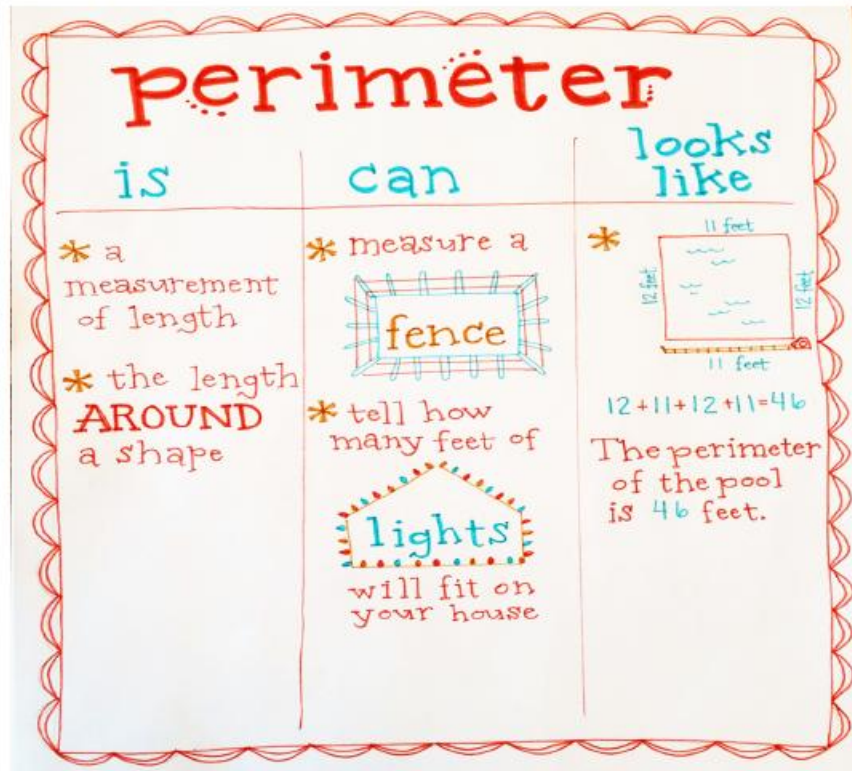 perimeter
is
can
looks
like
* a
measurement
of length
* the length
AROUND
a shape
* measure a
fence
* tell how
many feet of
lights
will fit on
your house
*
11 feet
12 feet
12 feet
11 feet
12+11+12+11=46
The perimeter
of the pool
is 46 feet.